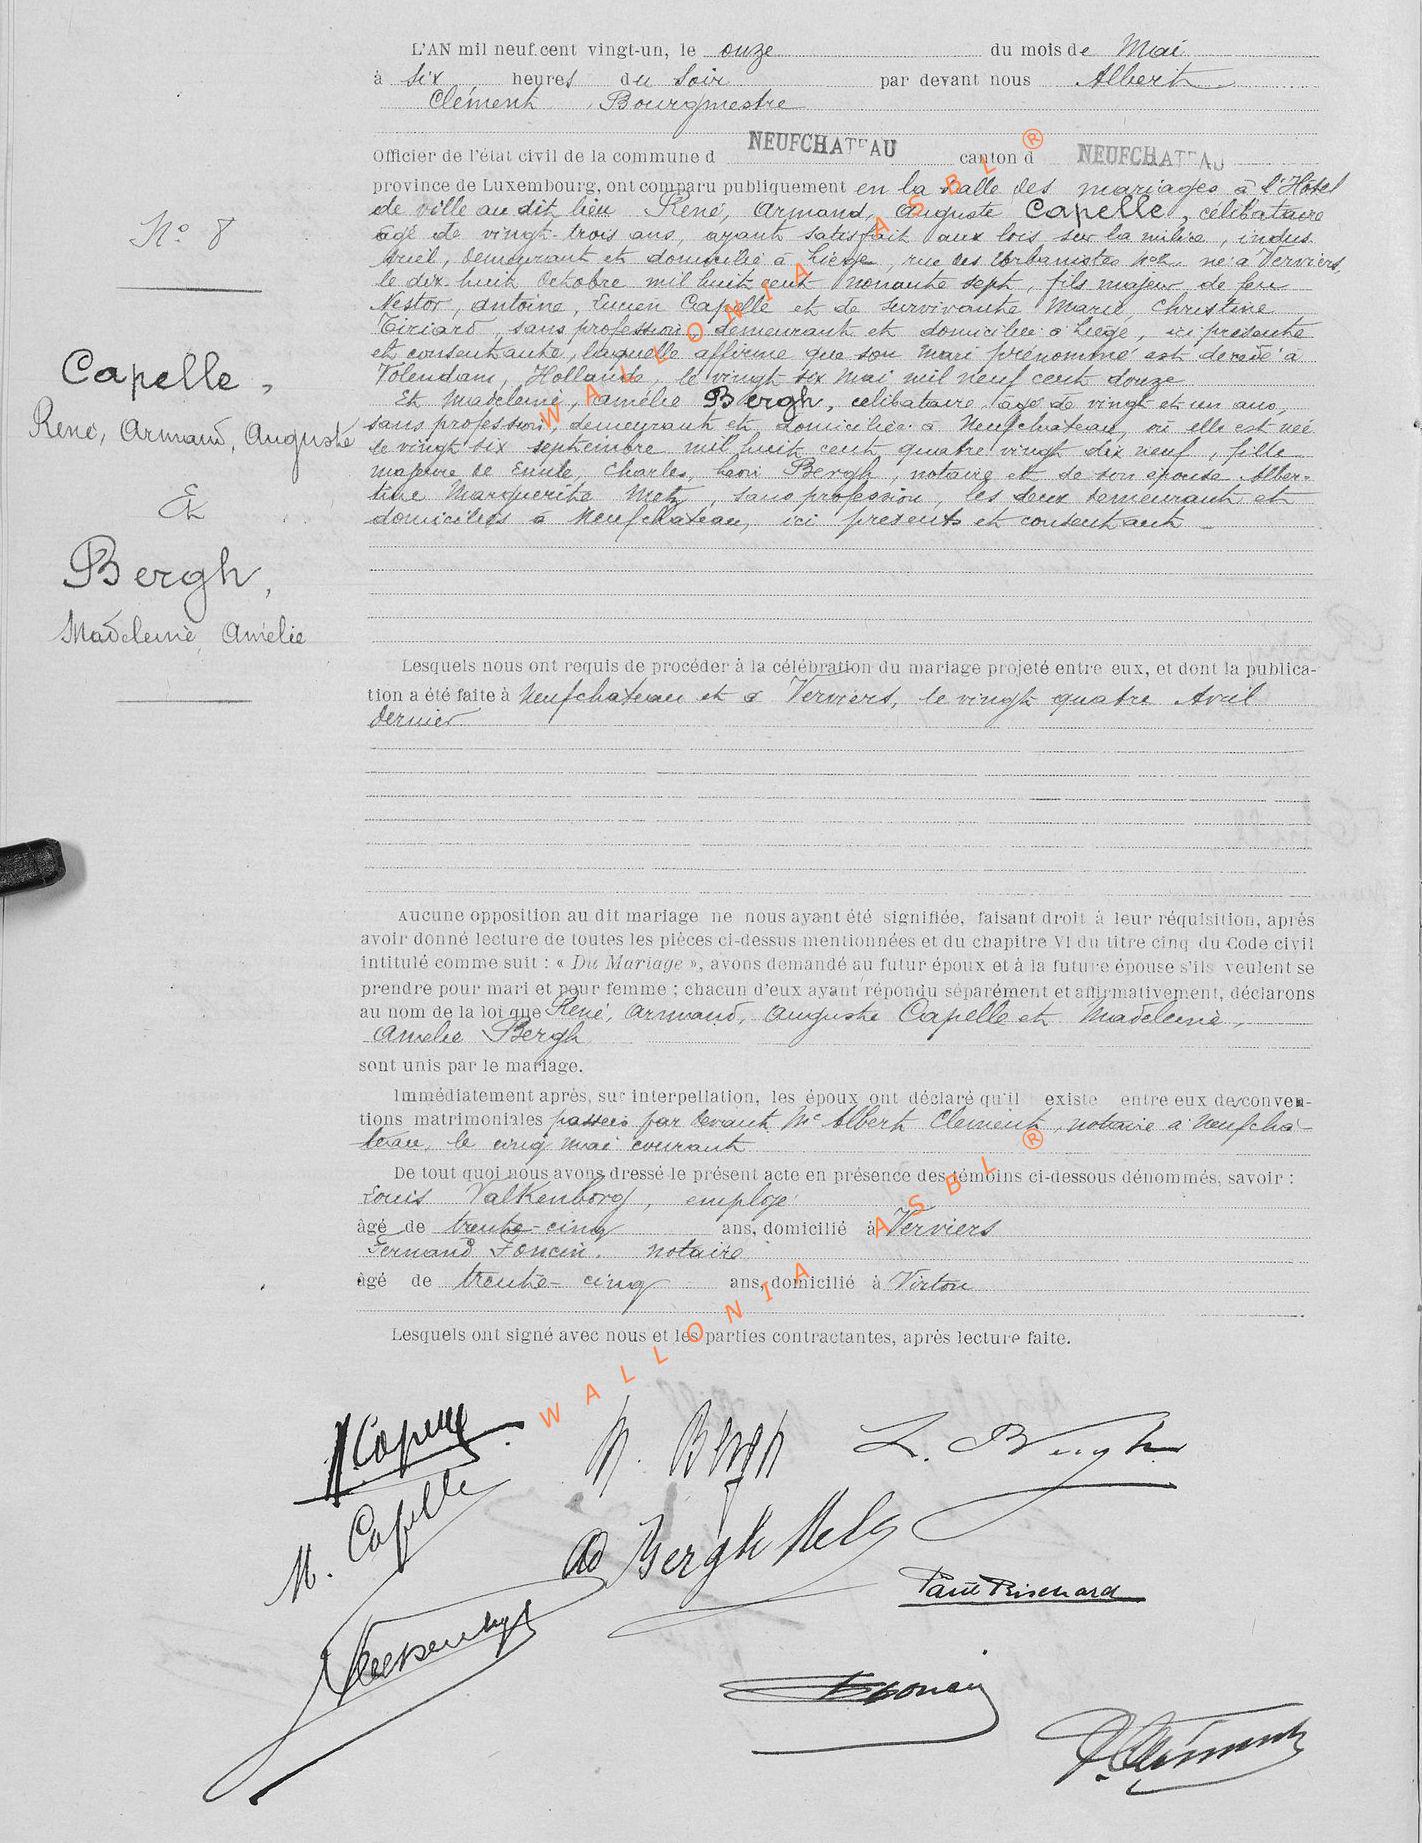 L'AN mil neuf cent vingt-un, le onze du mois de Mai
à six heures du soir par devant nous Albert
Clément, Bourgmestre
Officier de l'état civil de la commune d NEUFCHATEAU canton d NEUFCHATEAU
province de Luxembourg, ont comparu publiquement en la salle des mariages à l'Hôtel
de ville au dit lieu René, Armand, Auguste Capelle, célibataire
âgé de vingt-trois ans, ayant satisfait aux lois sur la milice, indus
triel, demeurant et domicilié à Liège, rue des Urbanistes né à Verviers,
le dix huit Octobre mil huit cent nonante sept, fils majeur de feu
Nestor, Antoine, Lucien Capelle et de survivante Marie, Christine
Tiriard, sans profession, demeurant et domiciliée à Liège, ici présente
et consentante, laquelle affirme que son mari prénommé est décédé à
Volendam, Hollande, le vingt six Mai mil neuf cent douze
Et Madeleine, Amélie Bergh, célibataire, âgé de vingt et un ans,
sans profession, demeurant et domiciliée à Neufchateau, où elle est née
le vingt six septembre mil huit cent quatre vingt dix neuf, fille
majeure de Emile, Charles, Léon Bergh, notaire et de son épouse Alber-
tine Marguerite Metz, sans profession, les deux demeurant et
domiciliés à Neufchateau, ici présents et consentant
N° 8
Capelle,
René, Armand, Auguste
Et
Bergh,
Madeleine, Amélie
Lesquels nous ont requis de procéder à la célébration du mariage projeté entre eux, et dont la publica-
tion a été faite à Neufchateau et à Verviers, le vingt quatre Avril
dernier
Aucune opposition au dit mariage ne nous ayant été signifiée, faisant droit à leur réquisition, après
avoir donné lecture de toutes les pièces ci-dessus mentionnées et du chapitre VI du titre cinq du Code civil
intitulé comme suit : « Du Mariage », avons demandé au futur époux et à la future épouse s'ils veulent se
prendre pour mari et pour femme ; chacun d'eux ayant répondu séparément et affirmativement, déclarons
au nom de la loi que René, Armand, Auguste Capelle et Madeleine,
Amélie Bergh
sont unis par le mariage.
Immédiatement après, sur interpellation, les époux ont déclaré qu'il existe entre eux des conven-
tions matrimoniales passées par devant Me Albert Clément, notaire à Neufcha-
teau, le cinq mai courant
De tout quoi nous avons dressé le présent acte en présence des témoins ci-dessous dénommés, savoir :
Louis Valkenborg, employé
âgé de trente-cinq ans, domicilié à Verviers
Fernand Foncin, notaire
âgé de trente-cinq ans, domicilié à Virton
Lesquels ont signé avec nous et les parties contractantes, après lecture faite.
Capelle
M. Bergh
L. Bergh
M. Capelle
Bergh Metz
WALLONIA ASBL ®
WALLONIA ASBL ®